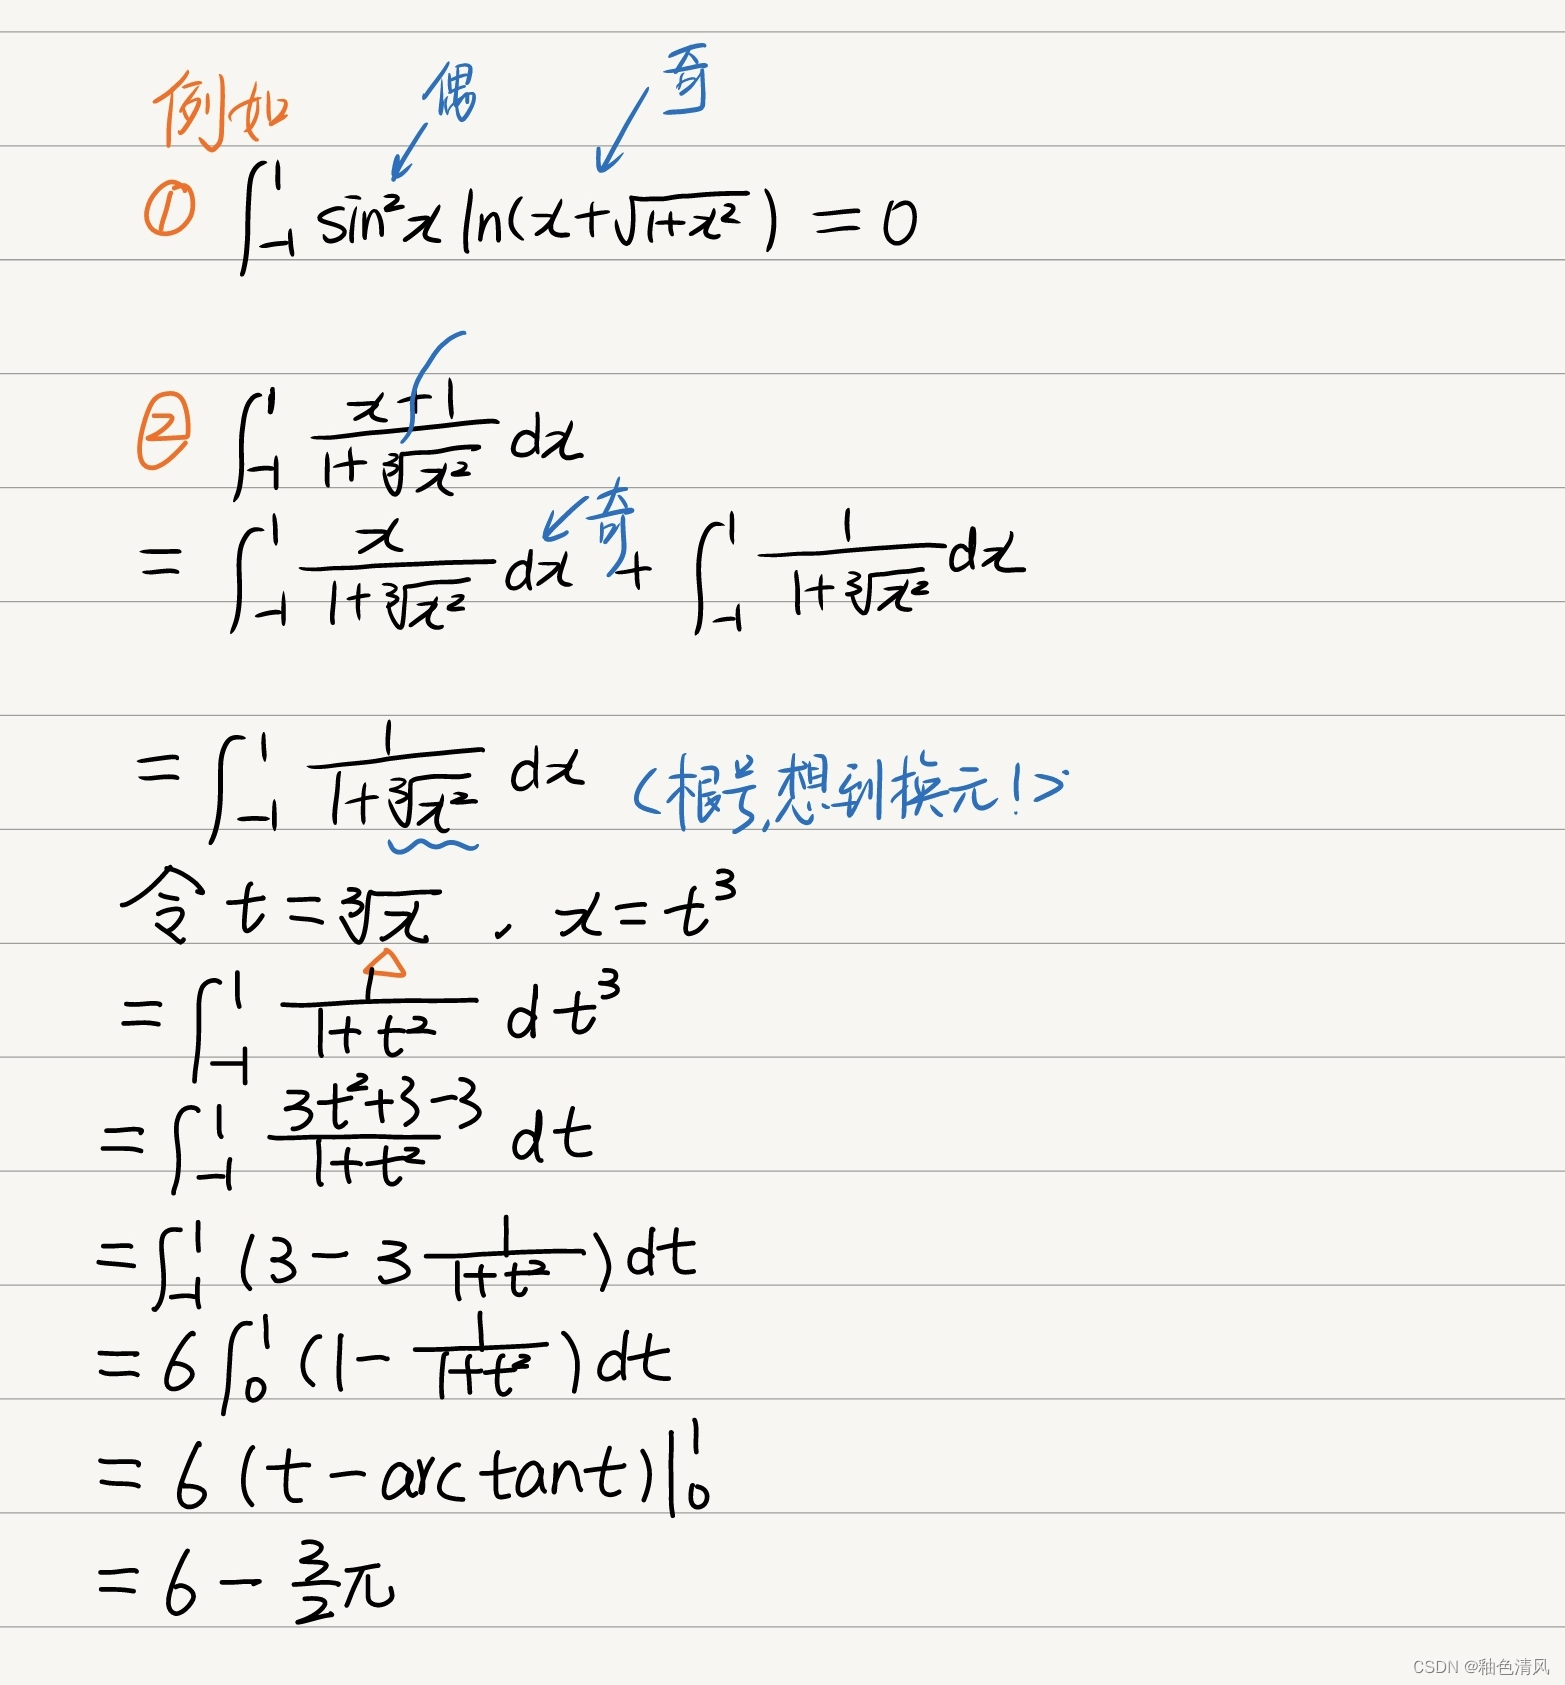 例如 偶 奇
① ∫₋₁¹ sin²x ln(x+√(1+x²)) = 0
② ∫₋₁¹ (x+1)/(1+∛(x²)) dx
= ∫₋₁¹ x/(1+∛(x²)) dx 奇 + ∫₋₁¹ 1/(1+∛(x²)) dx
= ∫₋₁¹ 1/(1+∛(x²)) dx (根号,想到换元!)
令 t=∛x , x=t³
= ∫₋₁¹ 1/(1+t²) dt³
= ∫₋₁¹ (3t²+3-3)/(1+t²) dt
= ∫₋₁¹ (3-3 1/(1+t²)) dt
= 6∫₀¹ (1- 1/(1+t²)) dt
= 6(t-arctant)|₀¹
= 6 - 3/2 π
CSDN @釉色清风